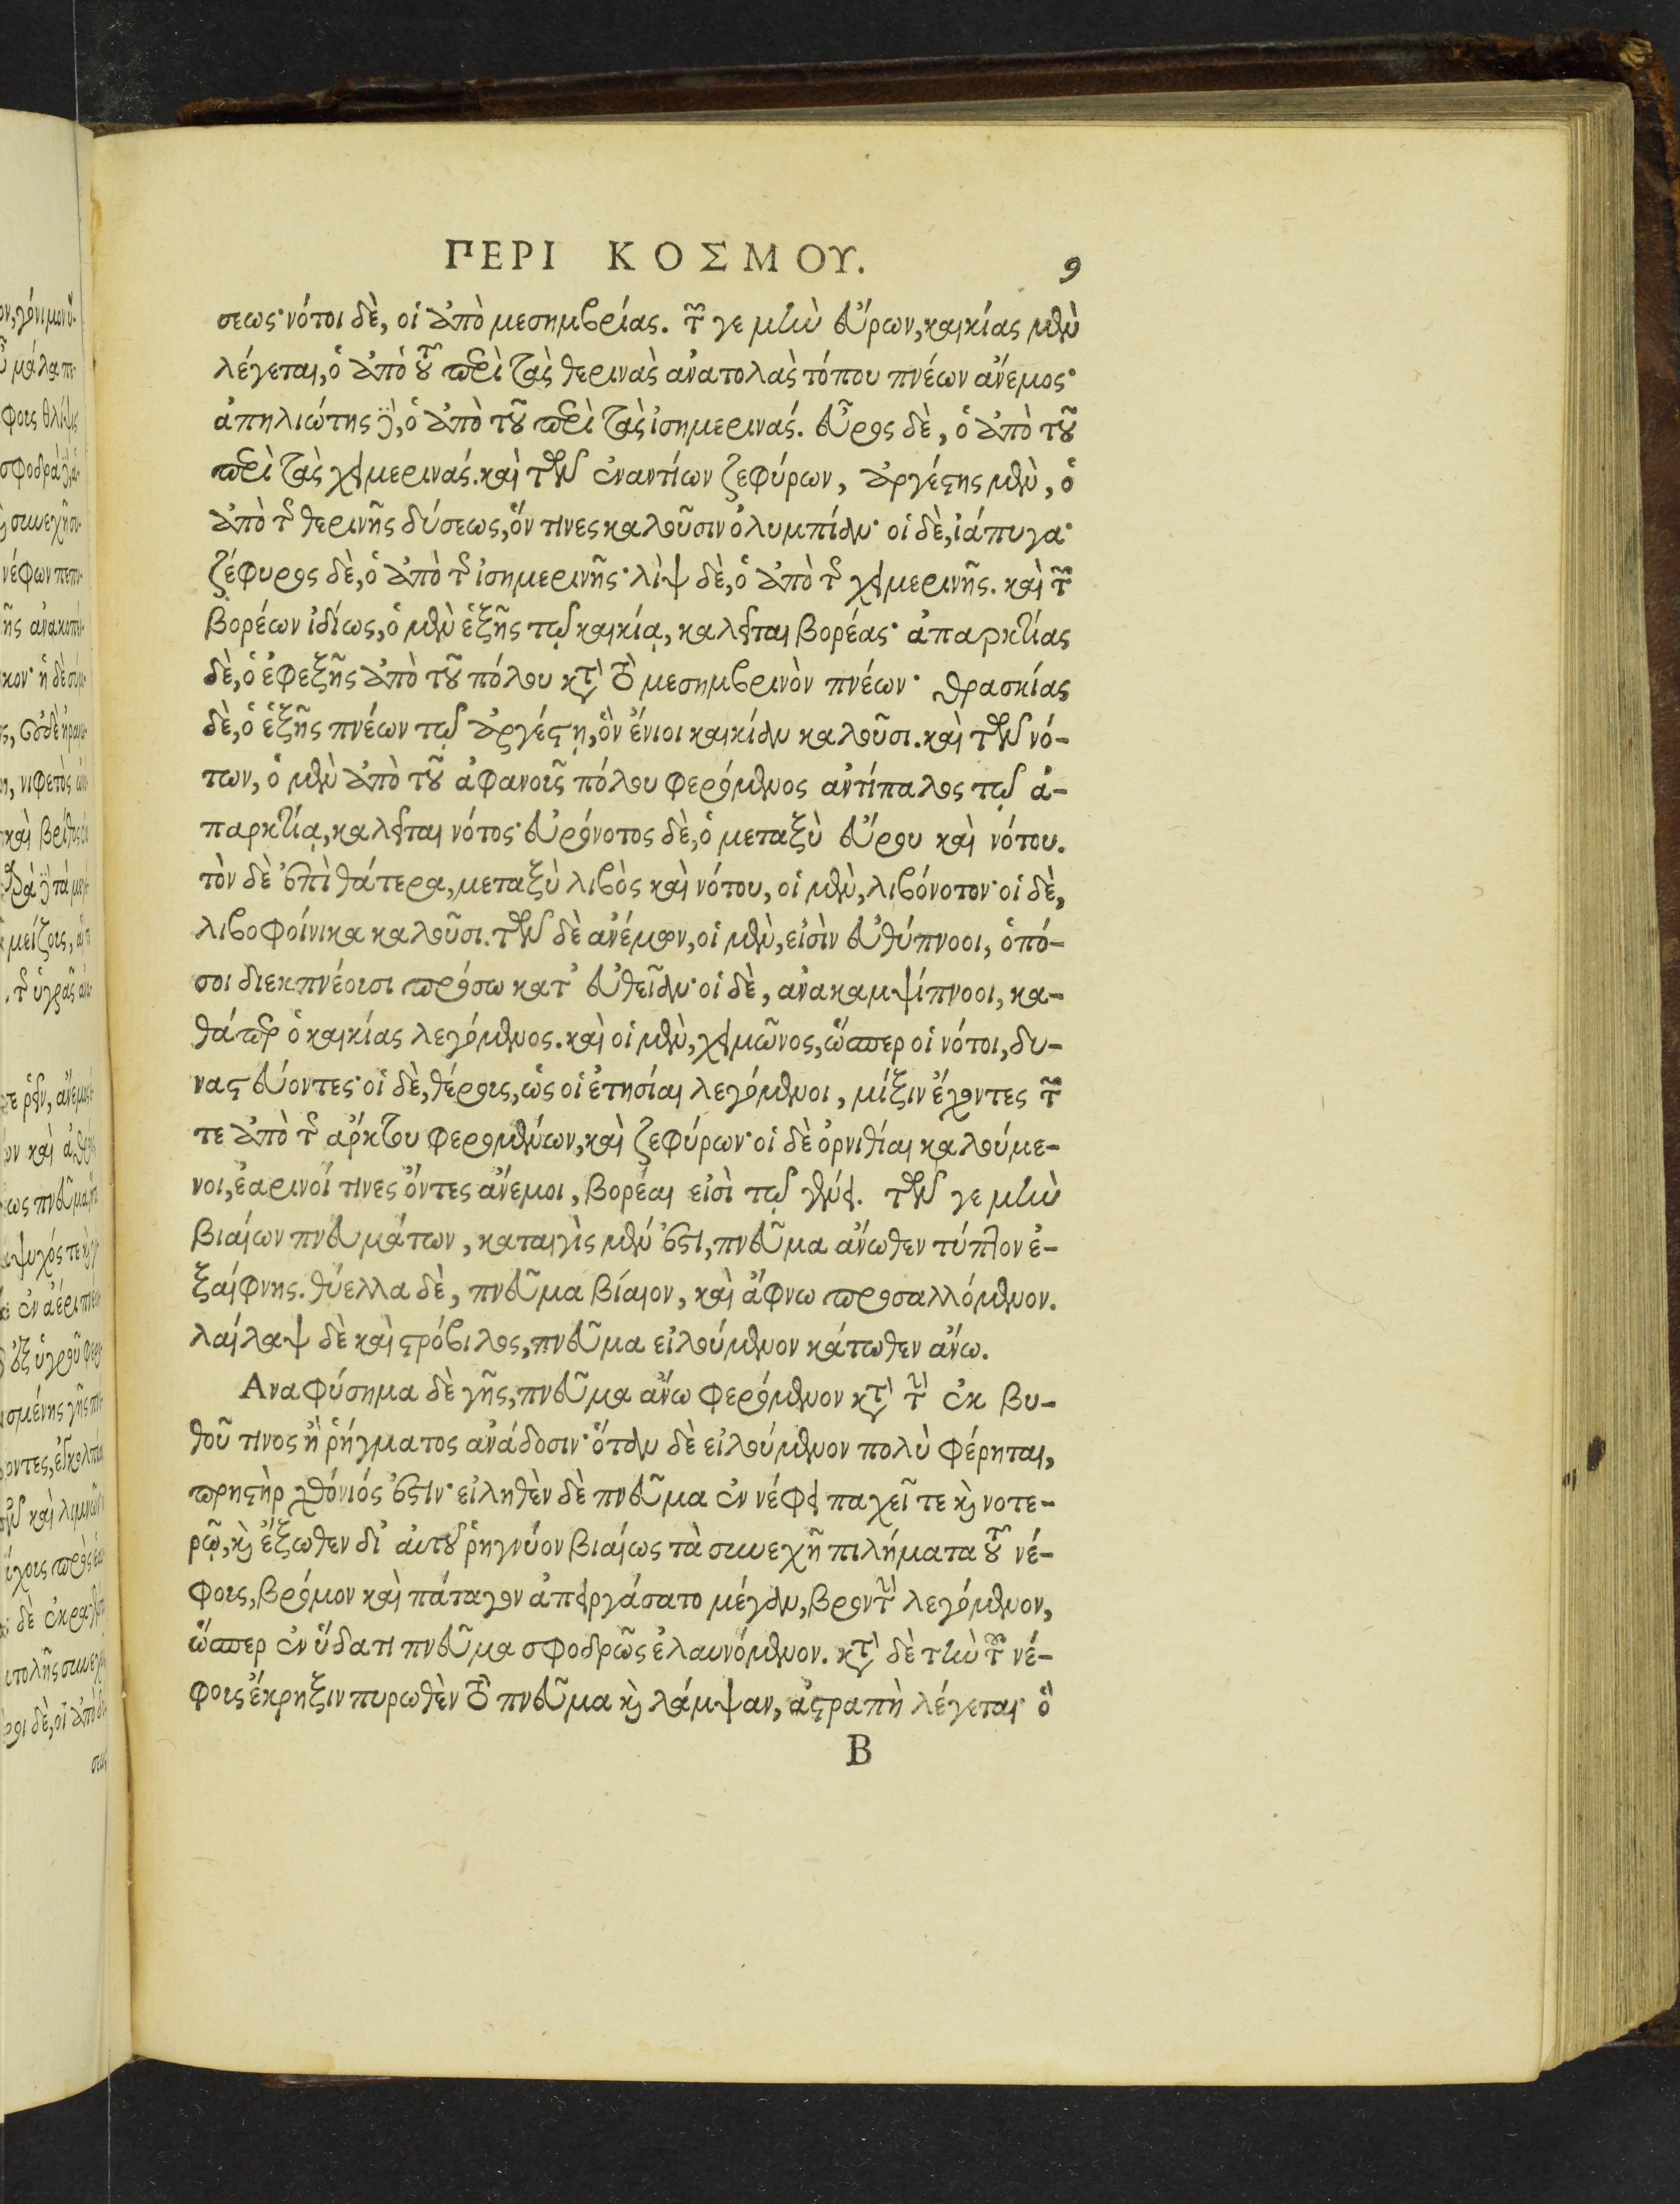 ΠΕΡΙ ΚΟΣΜΟΥ. 9
σεως· νότοι δὲ, οἱ ἀπὸ μεσημβρίας. τῶν γε μὴν εὔρων, καικίας μὲν
λέγεται, ὁ ἀπὸ τοῦ περὶ τὰς θερινὰς ἀνατολὰς τόπου πνέων ἄνεμος·
ἀπηλιώτης δὲ, ὁ ἀπὸ τοῦ περὶ τὰς ἰσημερινάς. εὖρος δὲ, ὁ ἀπὸ τοῦ
περὶ τὰς χειμερινάς. καὶ τῶν ἐναντίων ζεφύρων, ἀργέστης μὲν, ὁ
ἀπὸ τῆς θερινῆς δύσεως, ὅν τινες καλοῦσιν ὀλυμπίαν· οἱ δὲ, ἰάπυγα·
ζέφυρος δὲ, ὁ ἀπὸ τῆς ἰσημερινῆς· λὶψ δὲ, ὁ ἀπὸ τῆς χειμερινῆς. καὶ τῶν
βορέων ἰδίως, ὁ μὲν ἑξῆς τῷ καικίᾳ, καλεῖται βορέας· ἀπαρκτίας
δὲ, ὁ ἐφεξῆς ἀπὸ τοῦ πόλου κατὰ τὸ μεσημβρινὸν πνέων· θρασκίας
δὲ, ὁ ἑξῆς πνέων τῷ ἀργέστῃ, ὃν ἔνιοι καικίαν καλοῦσι. καὶ τῶν νό-
των, ὁ μὲν ἀπὸ τοῦ ἀφανοῦς πόλου φερόμενος ἀντίπαλος τῷ ἀ-
παρκτίᾳ, καλεῖται νότος· εὐρόνοτος δὲ, ὁ μεταξὺ εὔρου καὶ νότου.
τὸν δὲ ἐπὶ θάτερα, μεταξὺ λιβὸς καὶ νότου, οἱ μὲν, λιβόνοτον· οἱ δὲ,
λιβοφοίνικα καλοῦσι. τῶν δὲ ἀνέμων, οἱ μὲν, εἰσὶν εὐθύπνοοι, ὁπό-
σοι διεκπνέουσι πρόσω κατ' εὐθεῖαν· οἱ δὲ, ἀνακαμψίπνοοι, κα-
θάπερ ὁ καικίας λεγόμενος. καὶ οἱ μὲν, χειμῶνος, ὥσπερ οἱ νότοι, δυ-
ναστεύοντες· οἱ δὲ, θέρους, ὡς οἱ ἐτησίαι λεγόμενοι, μίξιν ἔχοντες τῶν
τε ἀπὸ τῆς ἄρκτου φερομένων, καὶ ζεφύρων· οἱ δὲ ὀρνιθίαι καλούμε-
νοι, ἐαρινοί τινες ὄντες ἄνεμοι, βορέαι εἰσὶ τῷ γένει. τῶν γε μὴν
βιαίων πνευμάτων, καταιγὶς μέν ἐστι, πνεῦμα ἄνωθεν τύπτον ἐ-
ξαίφνης. θύελλα δὲ, πνεῦμα βίαιον, καὶ ἄφνω προσαλλόμενον.
λαίλαψ δὲ καὶ στρόβιλος, πνεῦμα εἰλούμενον κάτωθεν ἄνω.
Αναφύσημα δὲ γῆς, πνεῦμα ἄνω φερόμενον κατὰ τὴν ἐκ βυ-
θοῦ τινος ἢ ῥήγματος ἀνάδοσιν· ὅταν δὲ εἰλούμενον πολὺ φέρηται,
πρηστὴρ χθόνιός ἐστιν· εἰληθὲν δὲ πνεῦμα ἐν νέφει παχεῖ τε καὶ νοτε-
ρῷ, καὶ ἔξωθεν δι' αὐτοῦ ῥηγνύον βιαίως τὰ συνεχῆ πιλήματα τοῦ νέ-
φους, βρόμον καὶ πάταγον ἀπειργάσατο μέγαν, βροντὴν λεγόμενον,
ὥσπερ ἐν ὕδατι πνεῦμα σφοδρῶς ἐλαυνόμενον. κατὰ δὲ τὴν τοῦ νέ-
φους ἔκρηξιν πυρωθὲν τὸ πνεῦμα καὶ λάμψαν, ἀστραπὴ λέγεται· ὃ
B